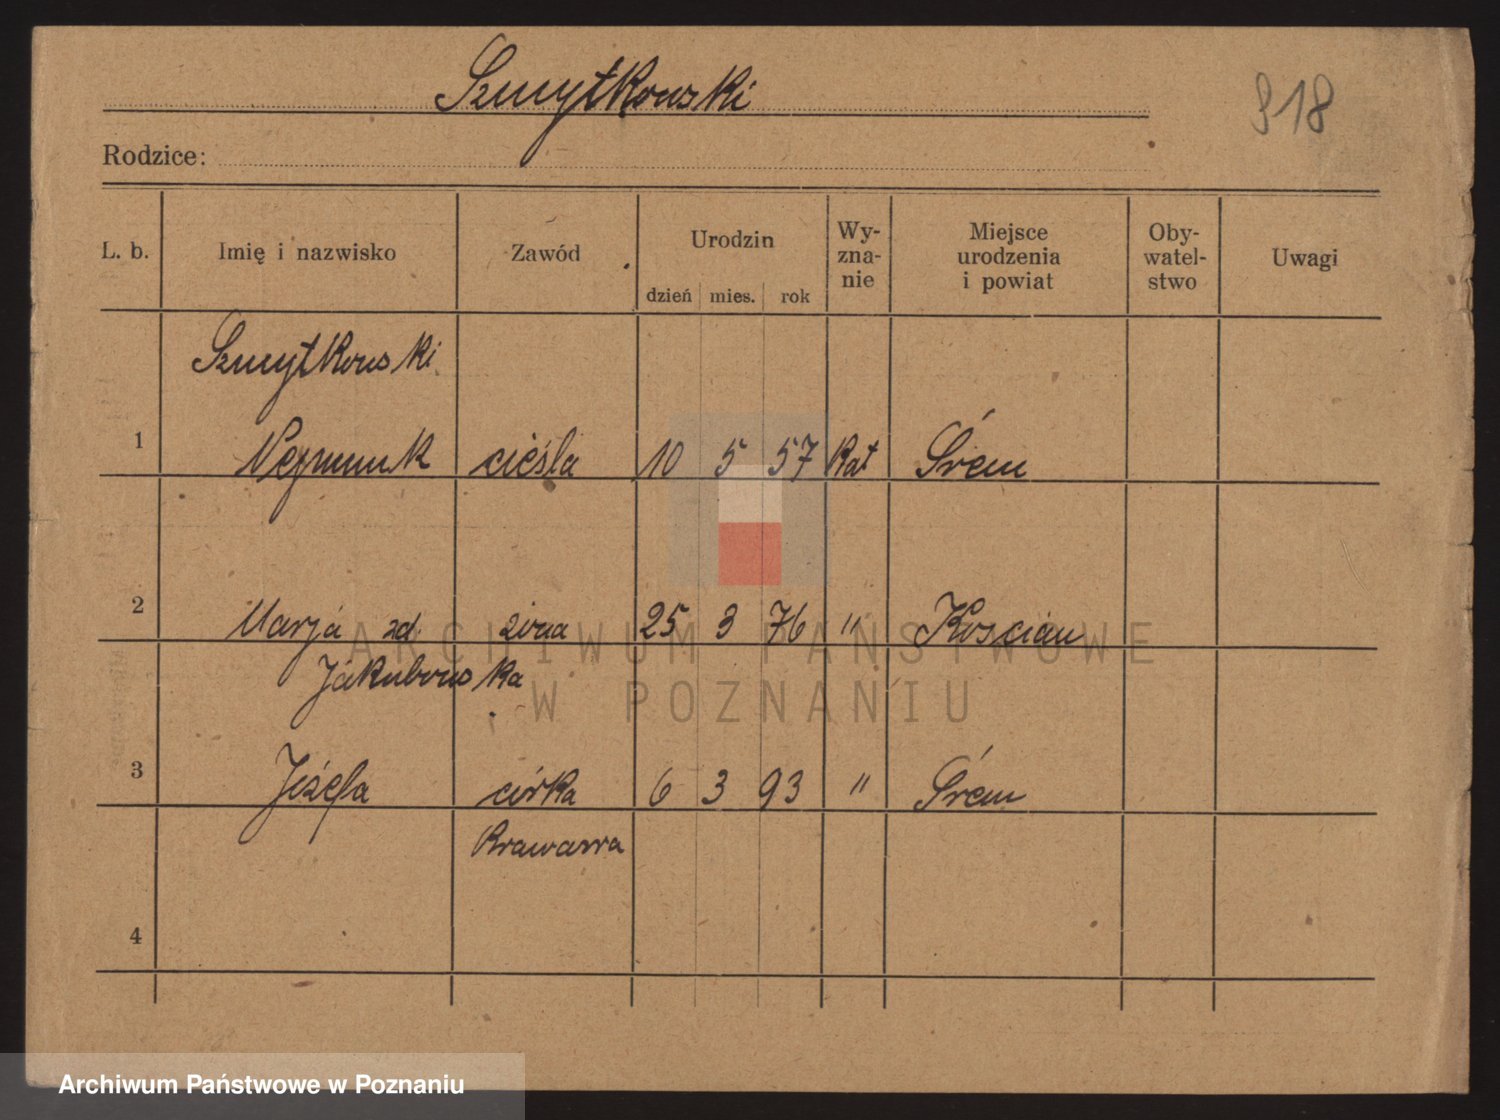 Szmytkowski
918
Rodzice:
L. b. Imię i nazwisko Zawód Urodzin dzień mies. rok Wy-zna-nie Miejsce urodzenia i powiat Oby-watel-stwo Uwagi
Szmytkowski
1 Nepomuk cieśla 10 5 57 kat Śrem
2 Marja zd. żona 25 3 76 " Kościan
Jakubowska
3 Józefa córka 6 3 93 " Śrem
4
ARCHIWUM PAŃSTWOWE
W POZNANIU
Archiwum Państwowe w Poznaniu